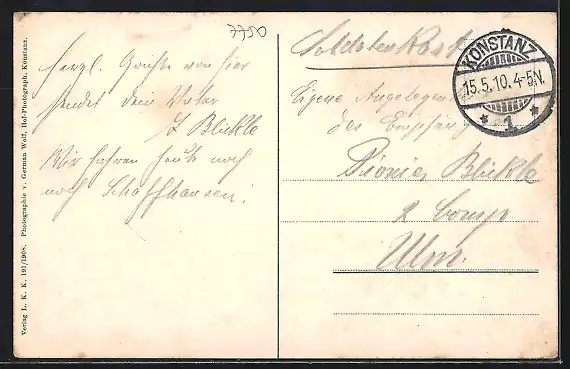 7750
Herzl. Grüße von hier
sendet dein Vater
J Blickle
Wir fahren heute noch
nach Schaffhausen!
Soldaten Karte
Eigene Angelegen
des Empfäng
Pionier Blickle
2 Comp
Ulm.
KONSTANZ
15.5.10.4-5N.
* 1 *
Verlag L. K. K. 191/1908. Photographie v. German Wolf, Hof-Photograph, Konstanz.